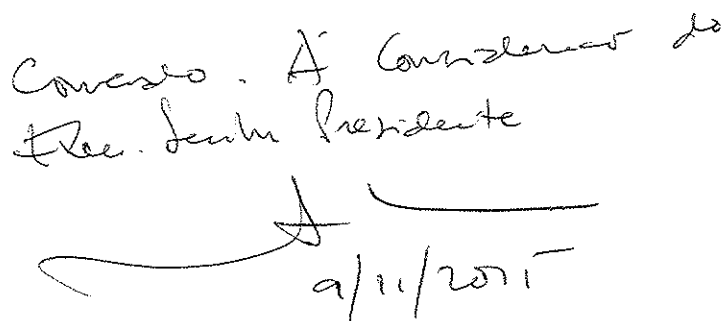 Concordo. À Consideração do
Exmo. Senhor Presidente
9/11/2015